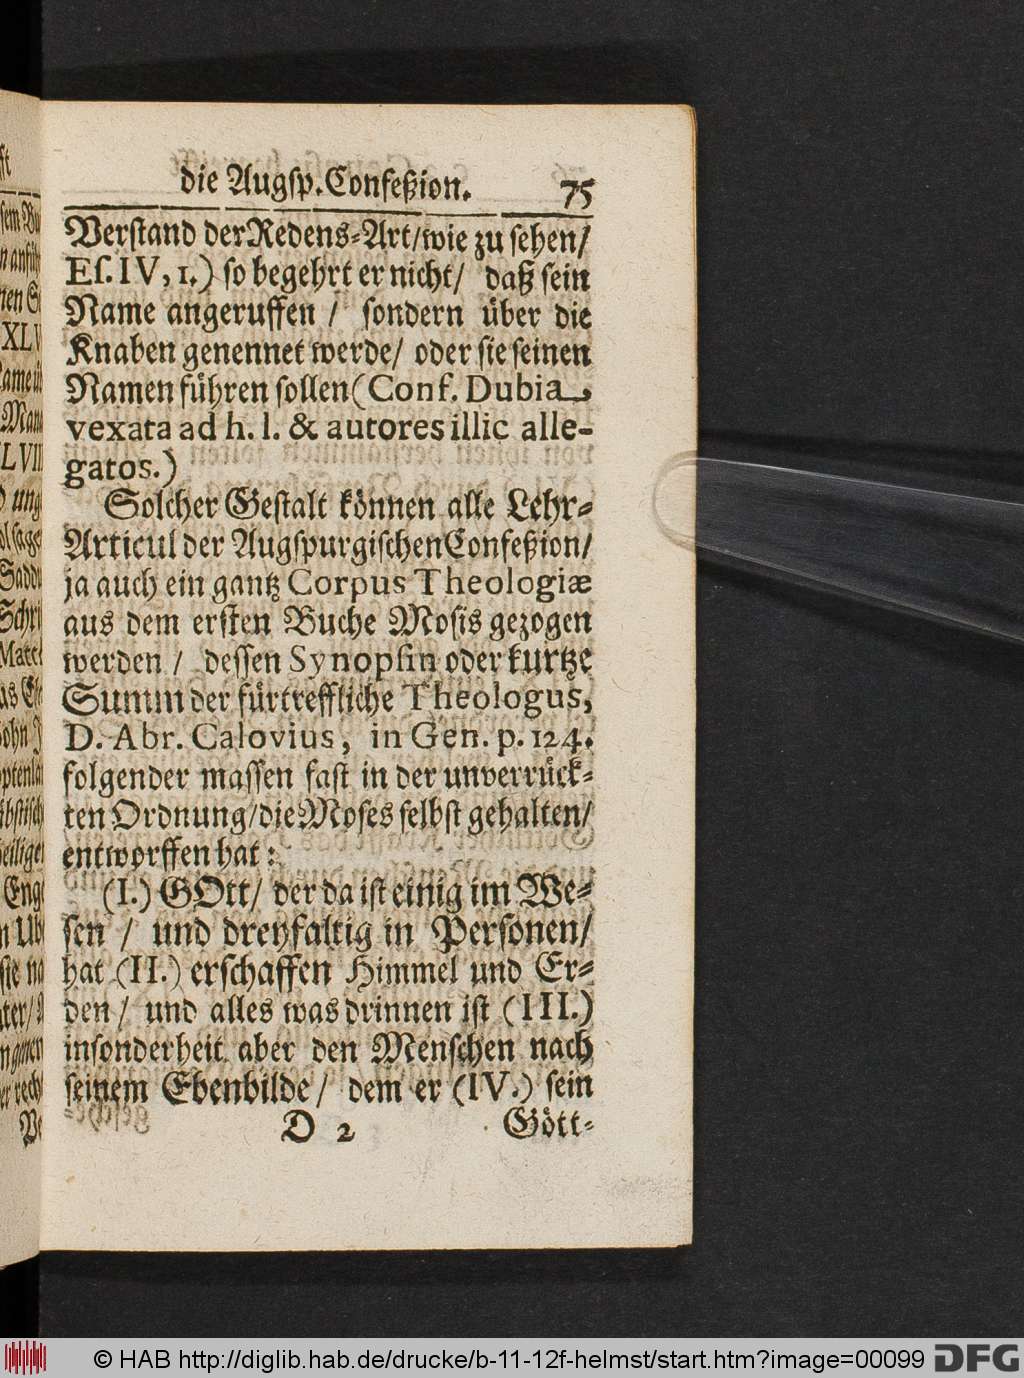 die Augsp. Confeßion. 75
Verstand der Redens-Art/wie zu sehen/
Es. IV, 1.) so begehrt er nicht/ daß sein
Name angeruffen / sondern über die
Knaben genennet werde/ oder sie seinen
Namen führen sollen (Conf. Dubia
vexata ad h. l. & autores illic alle-
gatos.)
Solcher Gestalt können alle Lehr-
Articul der Augspurgischen Confeßion/
ja auch ein gantz Corpus Theologiæ
aus dem ersten Buche Mosis gezogen
werden / dessen Synopsin oder kurtze
Summ der fürtreffliche Theologus,
D. Abr. Calovius, in Gen. p. 124.
folgender massen fast in der unverrück-
ten Ordnung/die Moses selbst gehalten/
entworffen hat:
(I.) GOtt/ der da ist einig im We-
sen / und dreyfaltig in Personen/
hat (II.) erschaffen Himmel und Er-
den / und alles was drinnen ist (III.)
insonderheit aber den Menschen nach
seinem Ebenbilde / dem er (IV.) sein
D 2 Gött-
© HAB http://diglib.hab.de/drucke/b-11-12f-helmst/start.htm?image=00099 DFG